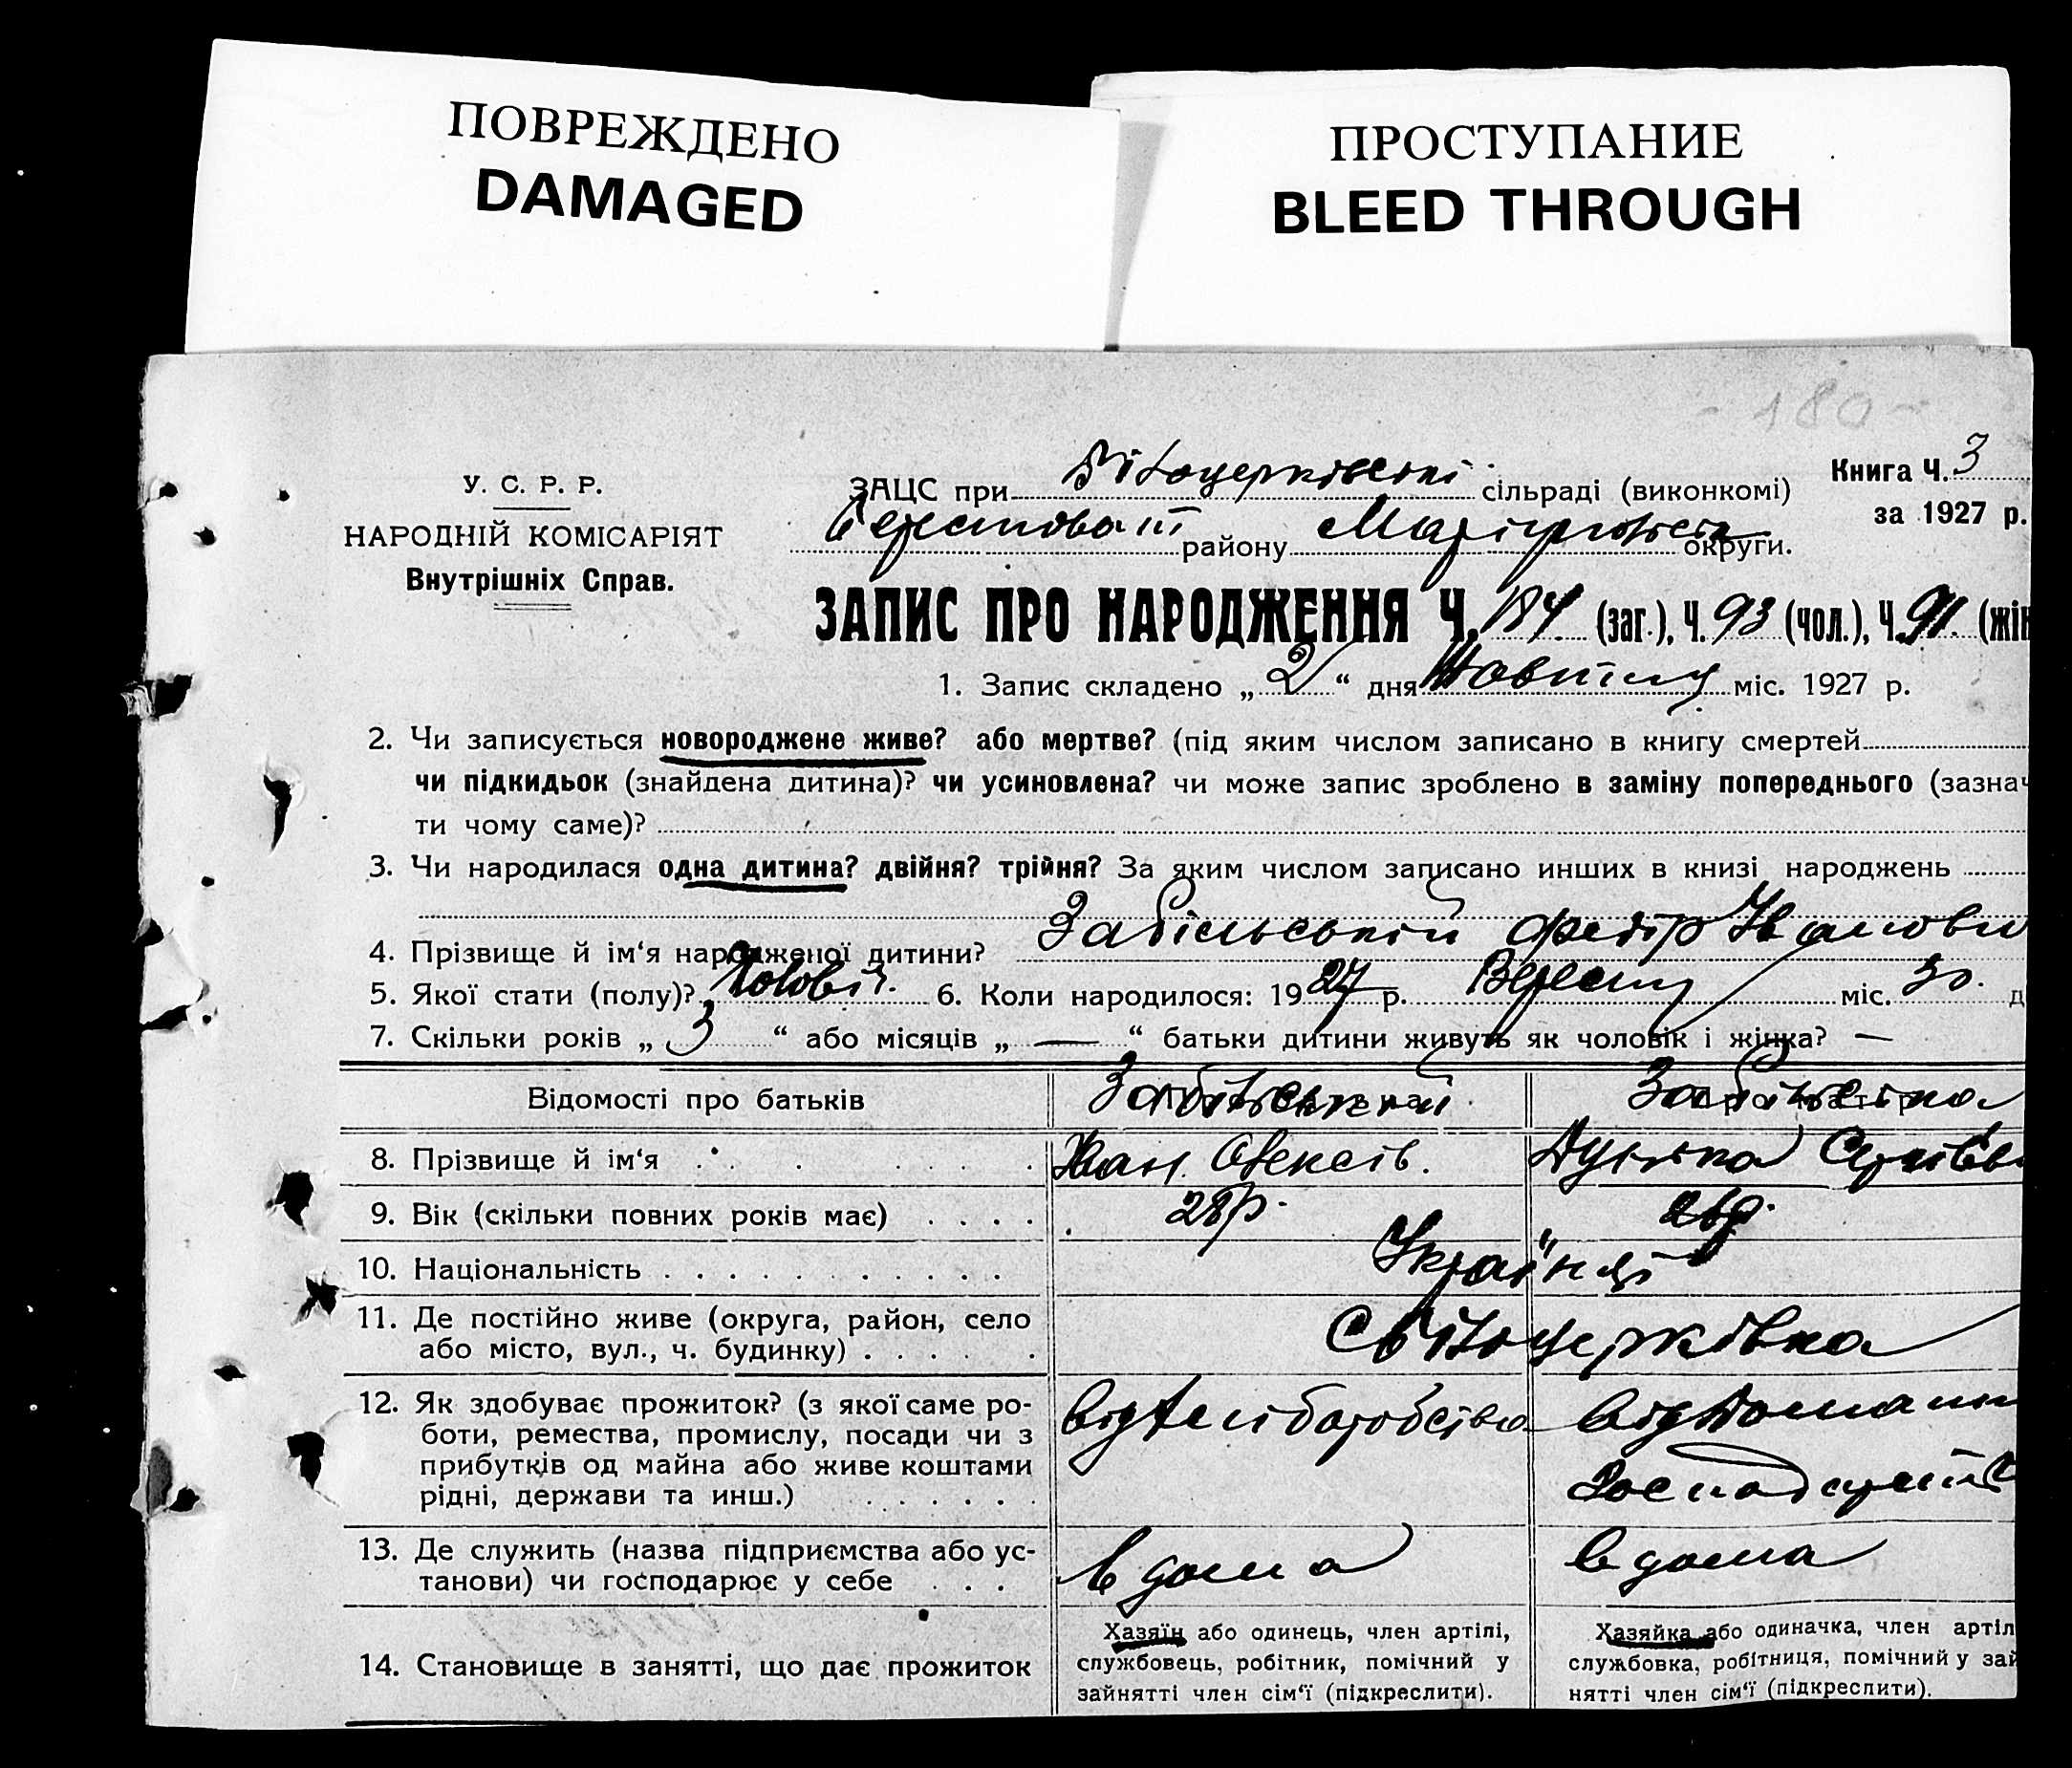 ПОВРЕЖДЕНО
DAMAGED
ПРОСТУПАНИЕ
BLEED THROUGH
- 180 -
У. С. Р. Р.
НАРОДНІЙ КОМІСАРІЯТ
Внутрішніх Справ.
Книга Ч. 3
за 1927 р.
ЗАЦС при Білоцерківські сільраді (виконкомі)
району округи.
ЗАПИС ПРО НАРОДЖЕННЯ Ч. 184. (заг.), Ч. 93 (чол.), Ч. 91. (жін
1. Запис складено „ 2 “ дня Жовтня міс. 1927 р.
2. Чи записується новороджене живе? або мертве? (під яким числом записано в книгу смертей
чи підкидьок (знайдена дитина)? чи усиновлена? чи може запис зроблено в заміну попереднього (зазнач
ти чому саме)?
3. Чи народилася одна дитина? двійня? трійня? За яким числом записано инших в книзі народжень
4. Прізвище й ім‘я народженої дитини? Забільський Федір Іванови
5. Якої стати (полу)? Чоловіч. 6. Коли народилося: 1927 р. Вересня міс. 30. д
7. Скільки років „ 3 “ або місяців „ — “ батьки дитини живуть як чоловік і жінка? —
Відомості про батьків Забільський Забільська
8. Прізвище й ім‘я Іван Олексів.
9. Вік (скільки повних років має) 28р.
10. Національність Українці
11. Де постійно живе (округа, район, село
або місто, вул., ч. будинку)
12. Як здобуває прожиток? (з якої саме ро-
боти, ремества, промислу, посади чи з
прибутків од майна або живе коштами
рідні, держави та инш.)
13. Де служить (назва підприємства або ус-
танови) чи господарює у себе вдома вдома
14. Становище в занятті, що дає прожиток
Хазяїн або одинець, член артілі,
службовець, робітник, помічний у
зайнятті член сім‘ї (підкреслити).
Хазяйка або одиначка, член артіл
службовка, робітниця, помічний у зай
нятті член сім‘ї (підкреслити).